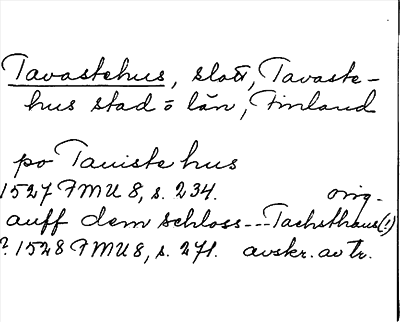 Tavastehus, slott, Tavaste-
hus stad o län, Finland
po Tauistehus
1527 FMU 8, s. 234. orig.
auff dem schloss---Tachsthaus(!)
? 1528 FMU 8, s. 271. avskr. av tr.